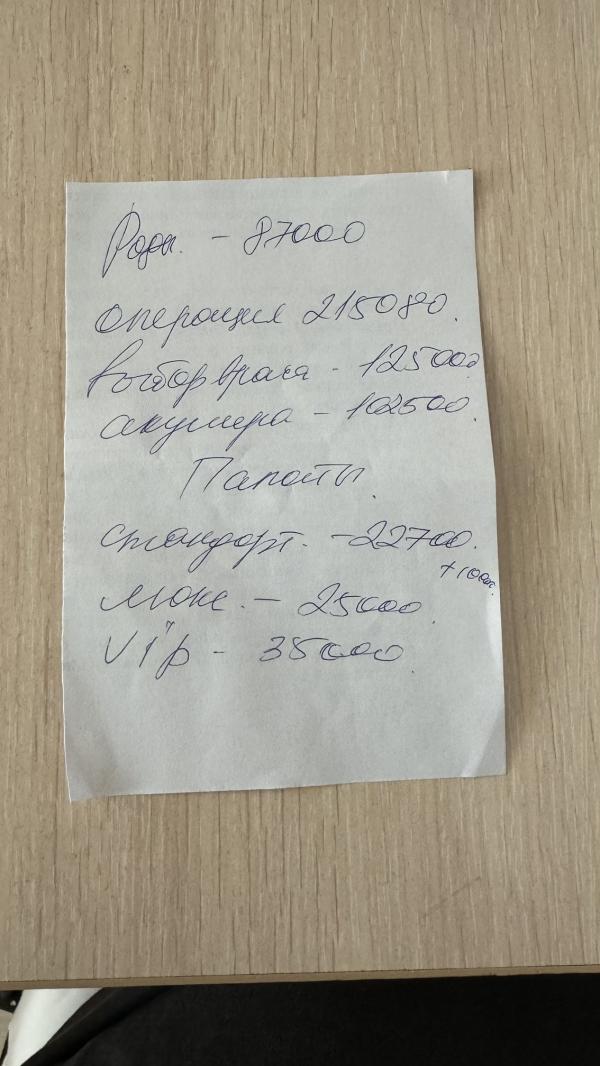 Роды. - 87000
операция 215080.
выбор врача - 125000
акушера - 102500.
Палаты.
стандарт. - 22700.
люкс. - 25000.
Vip - 35000.